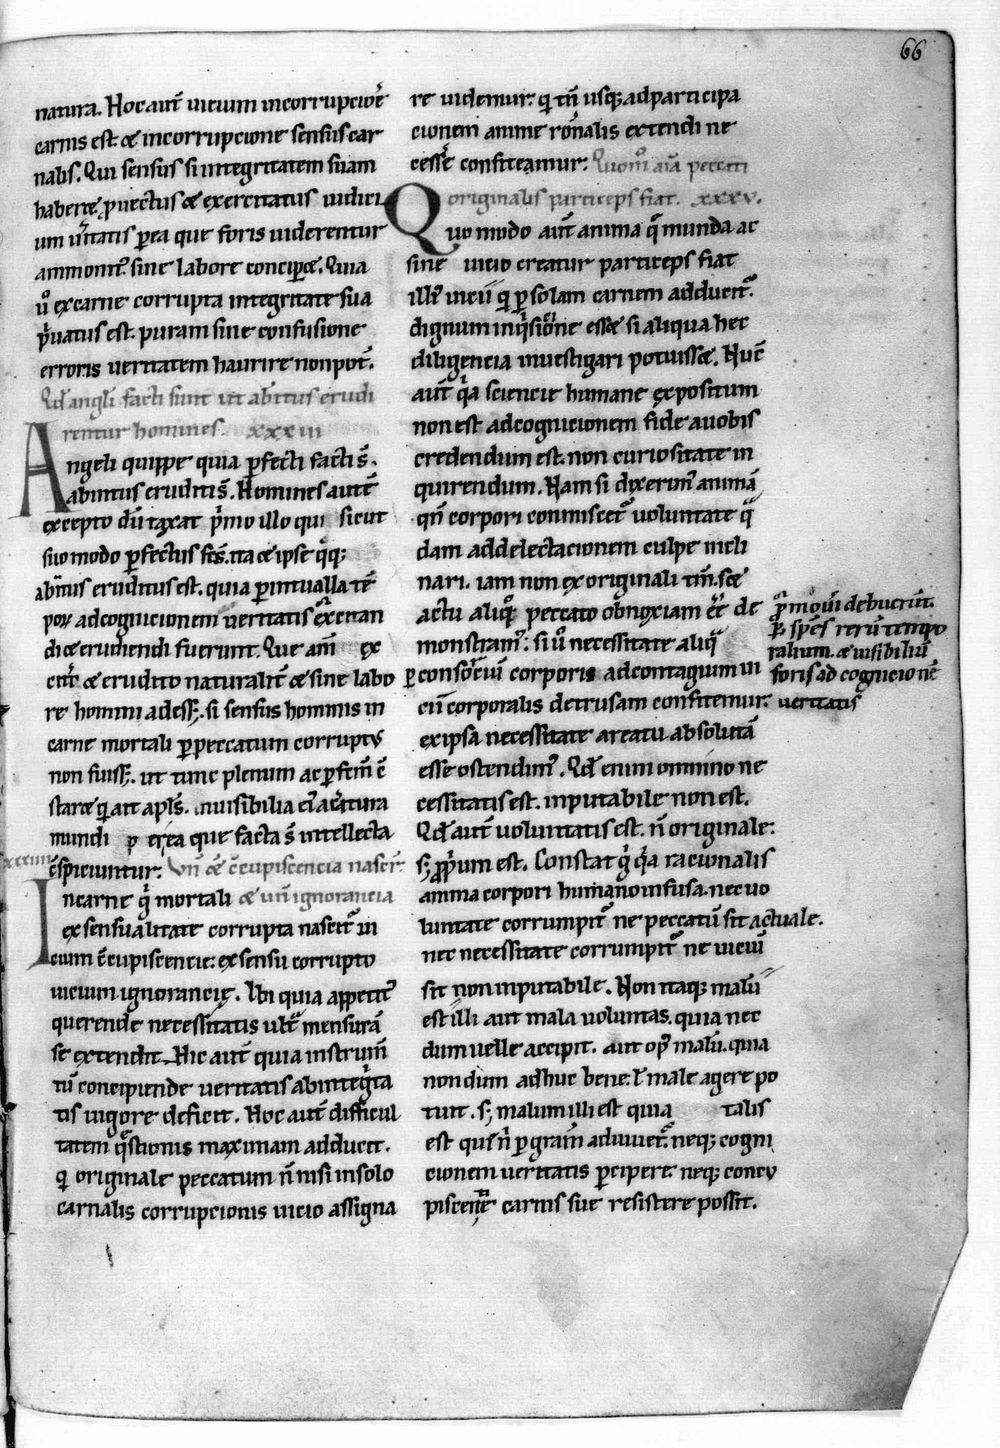 66
natura. Hoc aut̄ uicium incorrupcioē
carnis est. & incorrupcione sensus car
nalis. Qui sensus si integritatem suam
haberet, ꝓuectus & exercitatus iudici
um ueritatis p̄ ea que foris uiderentur
ammonit᷑ sine labore conciperet. Quia
u̓ ex carne corrupta integritate sua
p̓uatus est. puram sine confusione
erroris ueritatem haurire non pot̄.
Qd̄ angl̓i facti sunt ut ab intus erudi
rentur homines. xxxiii
Angeli quippe quia ꝑfecti facti s̄.
ab intus eruditi s̄. Homines aut̄
excepto dū taxat p̓mo illo qui sicut
suo modo ꝑfectus fc̄s. ita & ipse q̓q;
ab intus eruditus est. quia ꝑ interualla tē
poꝝ ad cognicionem ueritatis exercitan
di & erudiendi fuerunt. Que am̄ ex
ercit̓ & erudito naturalit̄ & sine labo
re homini adess&. si sensus hominis in
carne mortali ꝑ peccatum corruptꝰ
non fuiss&. ut tunc plenum ac ꝑfectū ē
staret qd̓ ait apl̄s. inuisibilia ei̓ a c̓atura
mundi p ea que facta s̄ intellecta
c̄spiciuntur: Vn̄ & c̄cupiscencia nascit᷑
xxxiiii
In carne q̓ mortali & un̄ ignorancia
ex sensualitate corrupta nascit᷑ ui
cium c̄cupiscencie: ex sensu corrupto
uicium ignorancie. Ibi quia appetit᷑
querende necessitatis ult̓ mensurā
se extendit. Hic aut̄ quia instrum̄
tū concipiende ueritatis ab integ̓ta
tis uigore deficit. Hoc aut̄ difficul
tatem q̄stionis maximam adducit.
qd̓ originale peccatum n̄ nisi in solo
carnalis corrupcionis uicio assigna
re uidemur: qd̓ tn̄ usq; ad participa
cionem anime rōnalis extendi ne
cesse confiteamur: Quom̄ aīa peccati
originalis particeps fiat. xxxv.
Quo modo aut̄ anima q̄ munda ac
sine uicio creatur particeps fiat
illi᷑ uicii qd̓ ꝑ solam carnem adducit᷑.
dignum inq̓sicione ess& si aliqua hec
diligencia inuestigari potuiss&. Nūc
aut̄ q̓a sciencie humane expositum
non est ad cognicionem fide a uobis
credendum est. non curiositate in
quirendum. Nam si dixerim᷑ animā
qn̄ corpori conmiscet᷑ uoluntate q̄
dam ad delectacionem culpe incli
nari. iam non ex originali tm̄. s; &
actu aliq̓ peccato obnoxiam ee de
monstram᷑: si u̓ necessitate aliq̄
ꝑ consorciū corporis ad contagium ui
cii corporalis detrusam confitemur:
ex ipsa necessitate a reatu absolutā
esse ostendim᷑. Qd̄ enim omnino ne
cessitatis est. inputabile non est.
Qd̄ aut̄ uoluntatis est. n̄ originale:
s; ꝓprium est. Constat q̓ q̓a racionalis
anima corpori humano infusa. nec uo
luntate corrumpit᷑ ne peccatū sit actuale.
nec necessitate corrumpit᷑ ne uiciū
sit non inputabile. Non itaq; malū
est illi aut mala uoluntas. quia nec
dum uelle accipit. aut op᷑ malū. quia
nondum adhuc bene. ł male agere po
tuit. s; malum illi est quia talis
est que n̄ ꝑ gram̄ adiuuet᷑. neq; cogni
cionem ueritatis ꝑcipere neq; concu
piscencie carnis sue resistere possit.
p̓mo qui debuerūt
ꝑ sp̄es rerū tempo
ralium. & uisibiliū
foris ad cognicionē
ueritatis